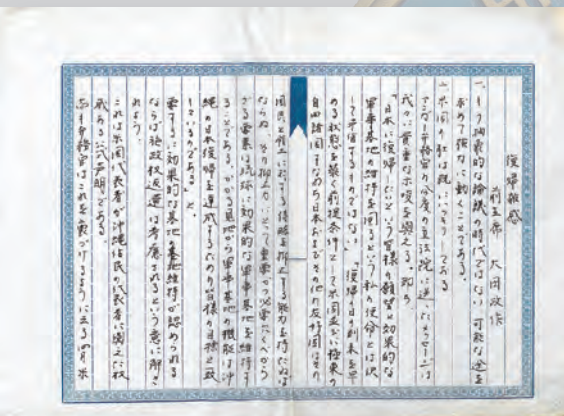 復帰雑感
前主席 大田政作
一、もう抽象的な論議の時代ではない。可能な途を
求めて強力に動くことである。
二、米国の肚は既にはっきりしてある
アンガー弁務官が今度の立法院に送ったメッセージは
我々に貴重な示唆を与える。即ち
「日本に復帰したいという皆様の願望と効果的な
軍事基地の維持を図るという私の使命とは決
して矛盾するものではない。「復帰の日が出来る早
める状態を築く前提条件として米国並に極東の
自由諸国すなわち日本およびその他の友好国はその
国民と領土に対する侵略を抑止する能力を持たねば
ならぬ。その抑止力にとって重要かつ必要かくべから
ざる要素は琉球に効果的な軍事基地を維持す
ることである。かかる基地から軍事基地の機能は沖
縄の日本復帰を達成するための皆様の目標と一致
しているのである。」と
要するに効果的な基地の基地維持が認められる
ならば施政权返還は考慮されるという意に解さ
れよう。
これは米国代表者が沖縄住民の代表者に与えた权
威ある公式声明である。
あ弁務官はこれを裏づけるように去る四月米